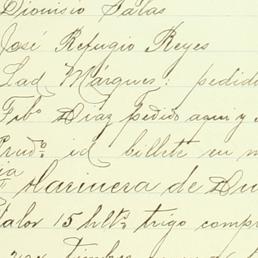 Dionisio Salas
José Refugio Reyes
Lad Márques: pedido
Tibº Diaz pedido aqui y
Prudº id billete en
Harinera de
Valor 15 hltºs trigo